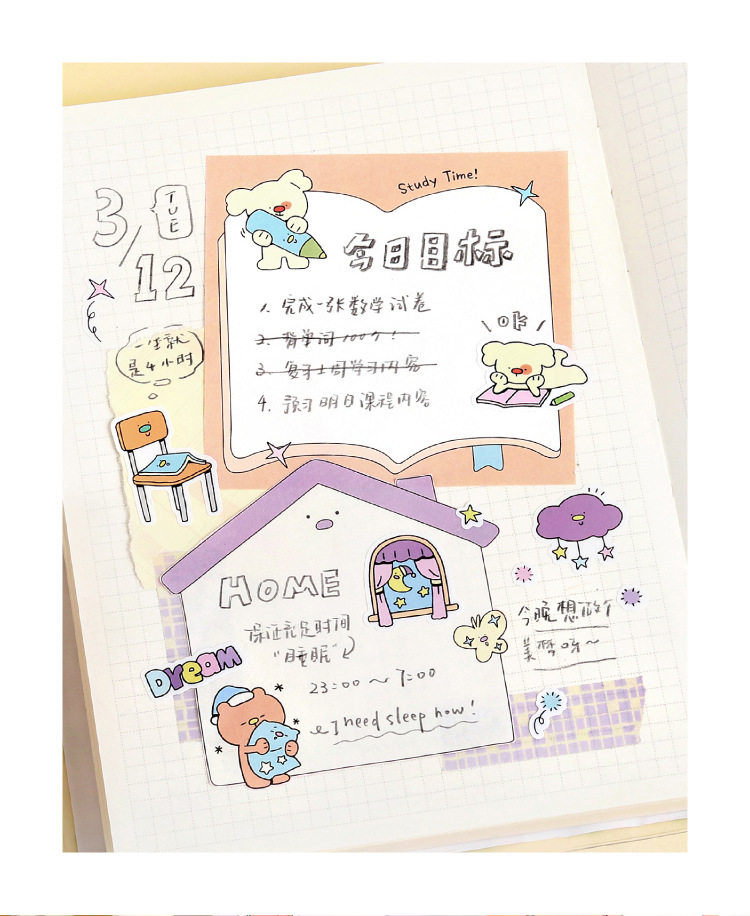 3/12
TUE
Study Time!
今日目标
1. 完成一张数学试卷
2. 背单词100个!
3. 复习上周学习内容
4. 预习明日课程内容
\ ok /
一坐就
是4小时
HOME
保证充足时间
"睡眠"
23:00~7:00
I need sleep now!
Dream
今晚想做个
美梦呀~